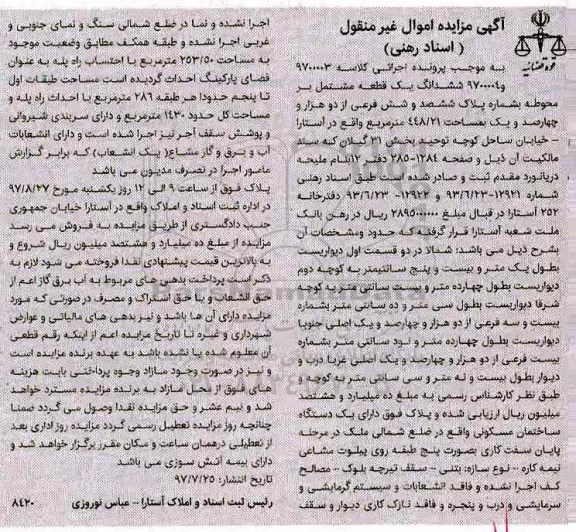 آگهی مزایده اموال غیر منقول
( اسناد رهنی)
به موجب پرونده اجرائی کلاسه ۹۷۰۰۰۰۳
و۹۷۰۰۰۰۴ ششدانگ یک قطعه مشتمل بر
محوطه بشماره پلاک ششصد و شش فرعی از دو هزار و
چهارصد و یک بمساحت ۴۴۸/۲۱ مترمربع واقع در آستارا
- خیابان ساحل کوچه توحید بخش ۳۱ گیلان که سند
مالکیت آن ذیل و صفحه ۱۲۸۴-۲۸۵ دفتر ۱۲بنام ملیحه
دریانورد مقدم ثبت و صادر شده است طبق اسناد رهنی
شماره ۱۲۹۲۱-۹۳/۶/۲۳ و ۱۲۹۲۲- ۹۳/۶/۲۳ دفترخانه
۲۵۲ آستارا در قبال مبلغ ۲۸۹۵۰۰۰۰۰۰ ریال در رهن بانک
ملت شعبه آستارا قرار گرفته که حدود ومشخصات آن
بشرح ذیل می باشد: شمالا در دو قسمت اول دیواریست
بطول یک متر و بیست و پنج سانتیمتر به کوچه دوم
دیواریست بطول چهارده متر و بیست سانتی متر به کوچه
شرقا دیواریست بطول سی متر و ده سانتی متر بشماره
بیست و سه فرعی از دو هزار و چهارصد و یک اصلی جنوبا
دیواریست بطول چهارده متر و نود سانتی متر بشماره
بیست فرعی از دو هزار و چهارصد و یک اصلی غربا درب و
دیوار بطول بیست و نه متر و سی سانتی متر به کوچه و
طبق نظر کارشناس رسمی به مبلغ ده میلیارد و هشتصد
میلیون ریال ارزیابی شده و پلاک فوق دارای یک دستگاه
ساختمان مسکونی واقع در ضلع شمالی ملک در مرحله
پایان سفت کاری بصورت پنج طبقه روی پیلوت مشاعی
نیمه کاره - نوع سازه: بتنی - سقف تیرچه بلوک - مصالح
کف اجرا نشده و فاقد انشعابات و سیستم گرمایشی و
سرمایشی و درب و پنجره و فاقد نازک کاری دیوار و سقف
اجرا نشده و نما در ضلع شمالی سنگ و نمای جنوبی و
غربی اجرا نشده و طبقه همکف مطابق وضعیت موجود
به مساحت ۲۵۳/۵۰ مترمربع با احتساب راه پله به عنوان
فضای پارکینگ احداث گردیده است مساحت طبقات اول
تا پنجم حدودا هر طبقه ۲۸۶ مترمربع با احداث راه پله و
مساحت کل حدود ۱۴۳۰ مترمربع و دارای سربندی شیروانی
و پوشش سقف آجر نیز اجرا شده است و دارای انشعابات
آب و برق و گاز مشاع( یک انشعاب) که برابر گزارش
مامور اجرا در تصرف مدیون می باشد
پلاک فوق از ساعت ۹ الی ۱۲ روز یکشنبه مورخ ۹۷/۸/۲۷
در اداره ثبت اسناد و املاک واقع در آستارا خیابان جمهوری
جنب دادگستری از طریق مزایده به فروش می رسد
مزایده از مبلغ ده میلیارد و هشتصد میلیون ریال شروع و
به بالاترین قیمت پیشنهادی نقدا فروخته می شود لازم به
ذکر است پرداخت بدهی های مربوط به آب برق گاز اعم از
حق انشعاب و یا حق اشتراک و مصرف در صورتی که مورد
مزایده دارای آن ها باشد و نیز بدهی های مالیاتی و عوارض
شهرداری و غیره تا تاریخ مزایده اعم از اینکه رقم قطعی
آن معلوم شده یا نشده باشد به عهده برنده مزایده است
و نیز در صورت وجود مازاد وجوه پرداختی بابت هزینه
های فوق از محل مازاد به برنده مزایده مسترد خواهد
شد و نیم عشر و حق مزایده نقدا وصول می گردد ضمنا
چنانچه روز مزایده تعطیل رسمی گردد مزایده روز اداری بعد
از تعطیلی درهمان ساعت و مکان مقرر برگزار خواهد شد و
دارای بیمه آتش سوزی می باشد
تاریخ انتشار: ۹۷/۷/۲۵
رئیس ثبت اسناد و املاک آستارا - عباس نوروزی ۸۴۲۰